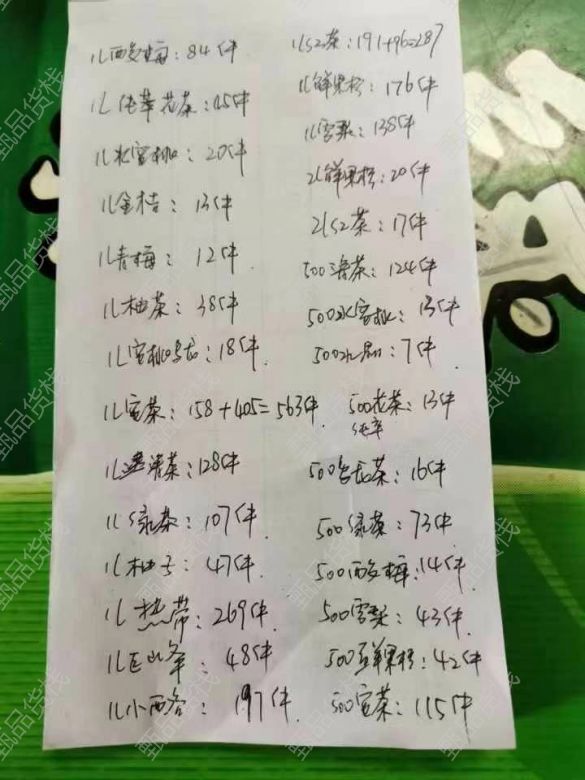 1L酸梅：84件
1L纯萃花茶：45件
1L水蜜桃：20件
1L金桔：13件
1L青梅：12件
1L柚茶：38件
1L蜜桃乌龙：18件
1L宝茶：158+405=563件
1L清茶：128件
1L绿茶：107件
1L柚子：47件
1L热带：269件
1L巨山华：48件
1L小西谷：197件
1L红茶：191+96=287
1L鲜果橙：176件
1L雪梨：138件
2L鲜果橙：20件
2L红茶：17件
500清茶：124件
500水蜜桃：13件
500水晶：7件
500花茶：13件
纯萃
500乌龙茶：16件
500绿茶：73件
500酸梅：14件
500雪梨：43件
500鲜果橙：42件
500宝茶：115件
甄品货栈